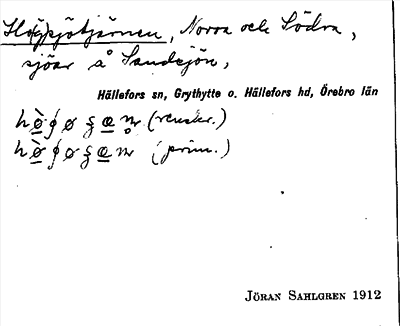 Högsjötjärnen, Norra och Södra,
sjöar å Sandsjön,
Hällefors sn, Grythytte o. Hällefors hd, Örebro län
(renskr.)
(prim.)
JÖRAN SAHLGREN 1912